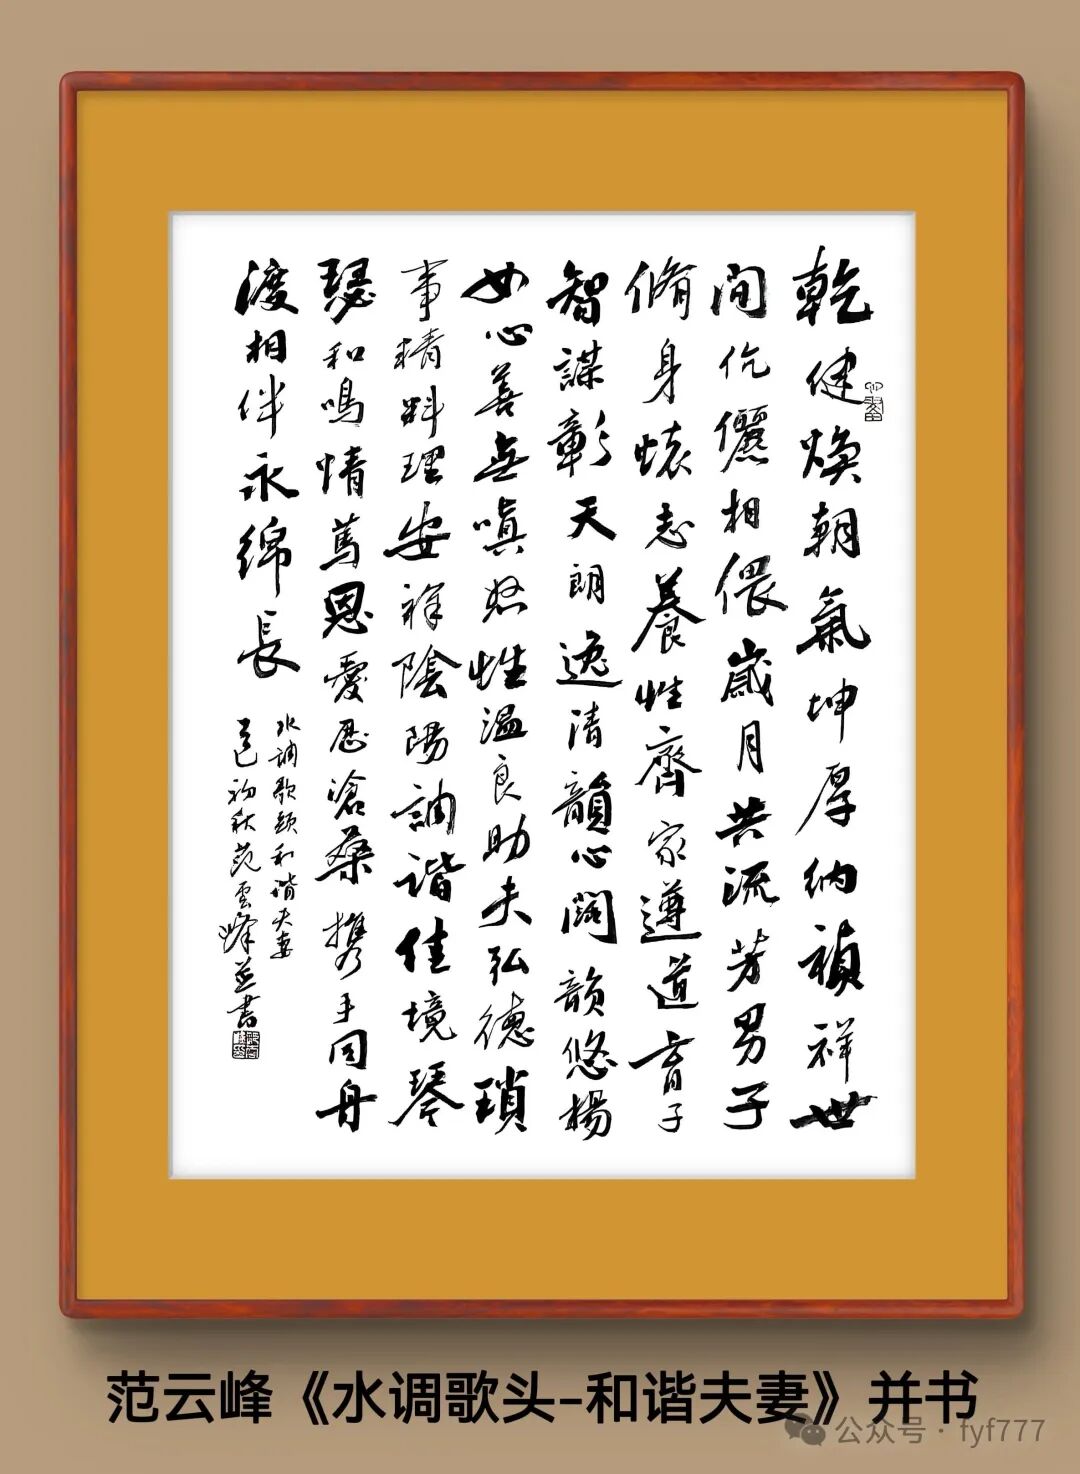 乾健焕朝氣坤厚納禎祥世
间伉儷相偎歲月共流芳男子
脩身懷志養性齊家遵道育子
智謀彰天朗逸清韻心阔韻悠揚
女心善無嗔怒性温良助夫弘德瑣
事精料理安祥陰陽調諧佳境琴
瑟和鳴情篤恩愛歷滄桑携手同舟
渡相伴永綿長
水調歌頭和諧夫妻
乙巳初秋范雲峰並書
范云峰《水调歌头-和谐夫妻》并书
公众号·fyf777